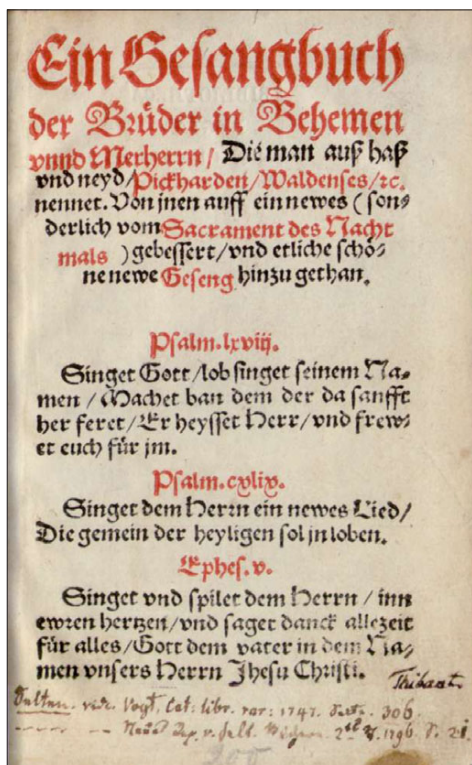 Ein Gesangbuch
der Brüder in Behemen
vnnd Merherrn / Die man auß haß
vnd neyd / Pickharden / Waldenses / ꝛc.
nennet. Von jnen auff ein newes (son⸗
derlich vom Sacrament des Nacht
mals ) gebessert / vnd etliche schö⸗
ne newe Geseng hinzu gethan.
Psalm. lxviij.
Singet Gott / lobsinget seinem Na⸗
men / Machet ban dem der da sanfft
her feret / Er heysset Herr / vnd frew⸗
et euch für jm.
Psalm. cxlix.
Singet dem Herrn ein newes Lied /
Die gemein der heyligen sol jn loben.
Ephes. v.
Singet vnd spilet dem Herrn / inn
ewren hertzen / vnd saget danck allezeit
für alles / Gott dem vater in dem Na⸗
men vnsers Herrn Jhesu Christi.
Thibaut.
Selten. vid. Vogt. Cat: libr. rar: 1747. 306.
1796. S. 21.